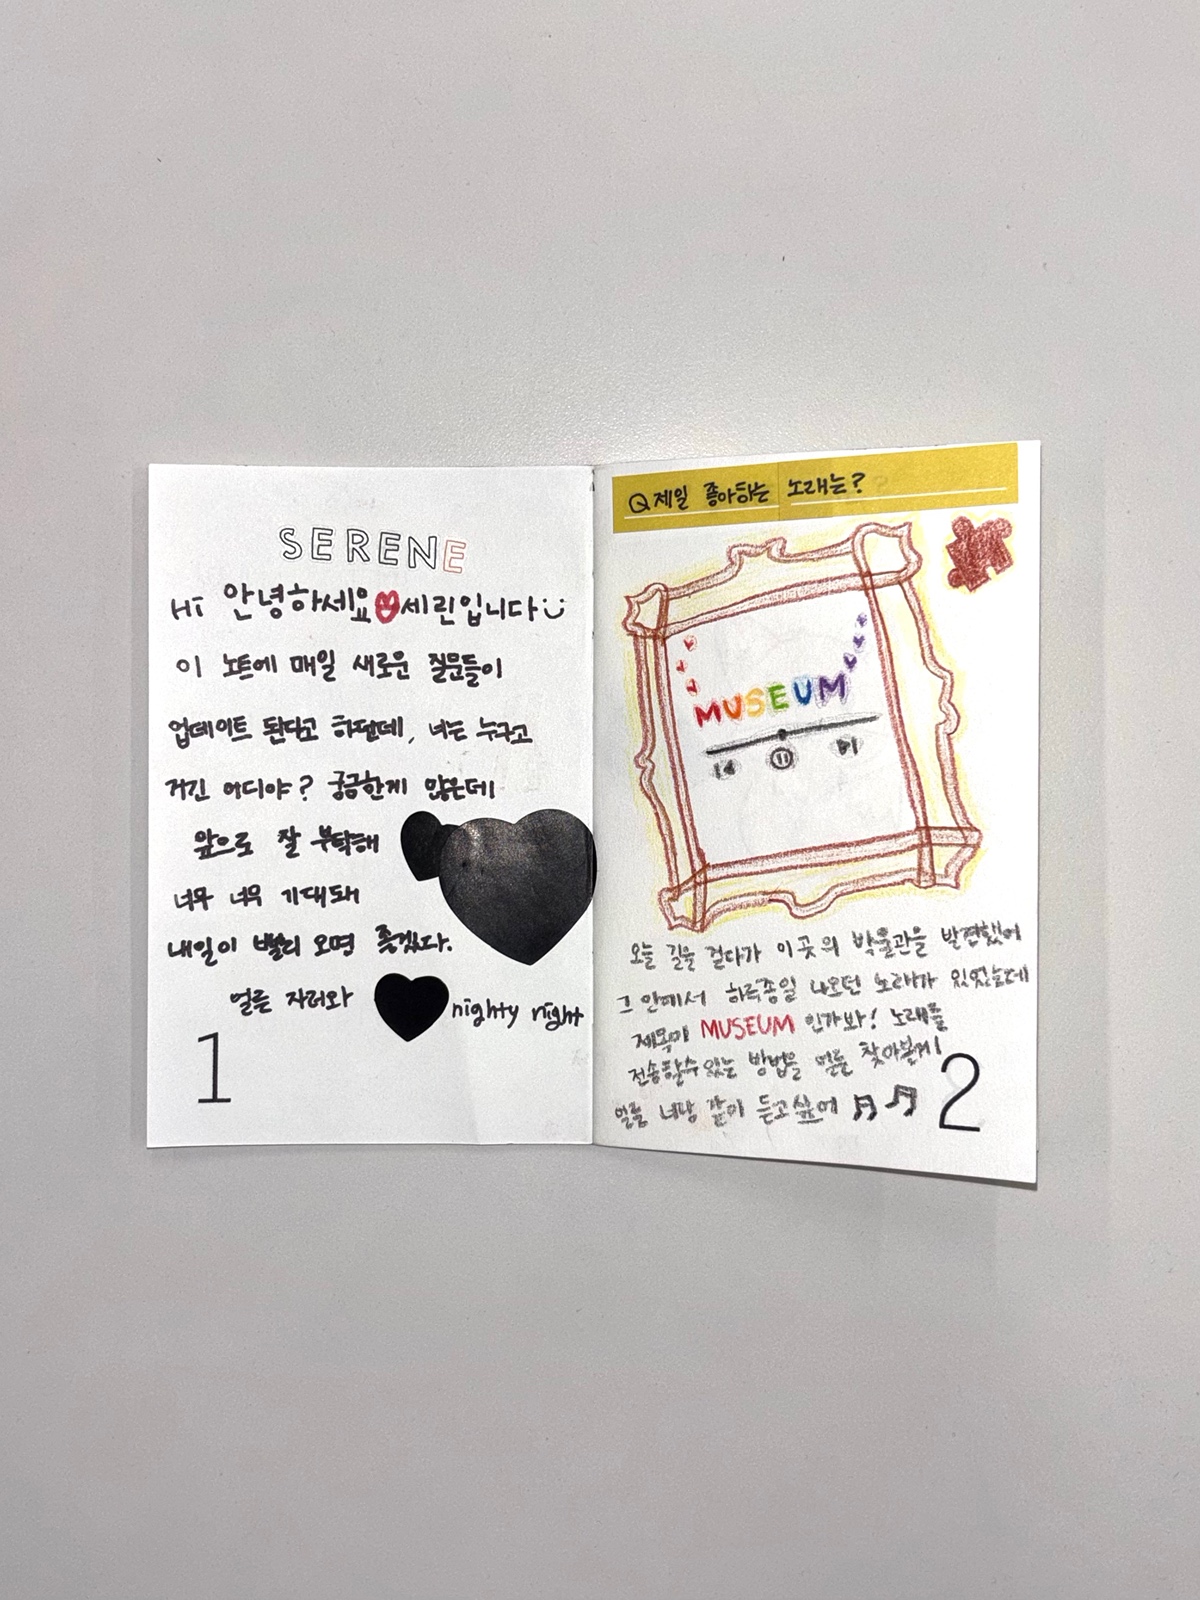 SERENE
Hi 안녕하세요 세린입니다
이 노트에 매일 새로운 질문들이
업데이트 된다고 하던데, 너는 누구고
거긴 어디야? 궁금한게 많은데
앞으로 잘 부탁해
너무 너무 기대돼
내일이 빨리 오면 좋겠다.
얼른 자러와
nighty night
1
Q 제일 좋아하는 노래는?
MUSEUM
오늘 길을 걷다가 이곳의 박물관을 발견했어
그 안에서 하루종일 나오던 노래가 있었는데
제목이 MUSEUM 인가봐! 노래를
전송할수있는 방법을 얼른 찾아볼게!
얼른 너랑 같이 듣고싶어
2